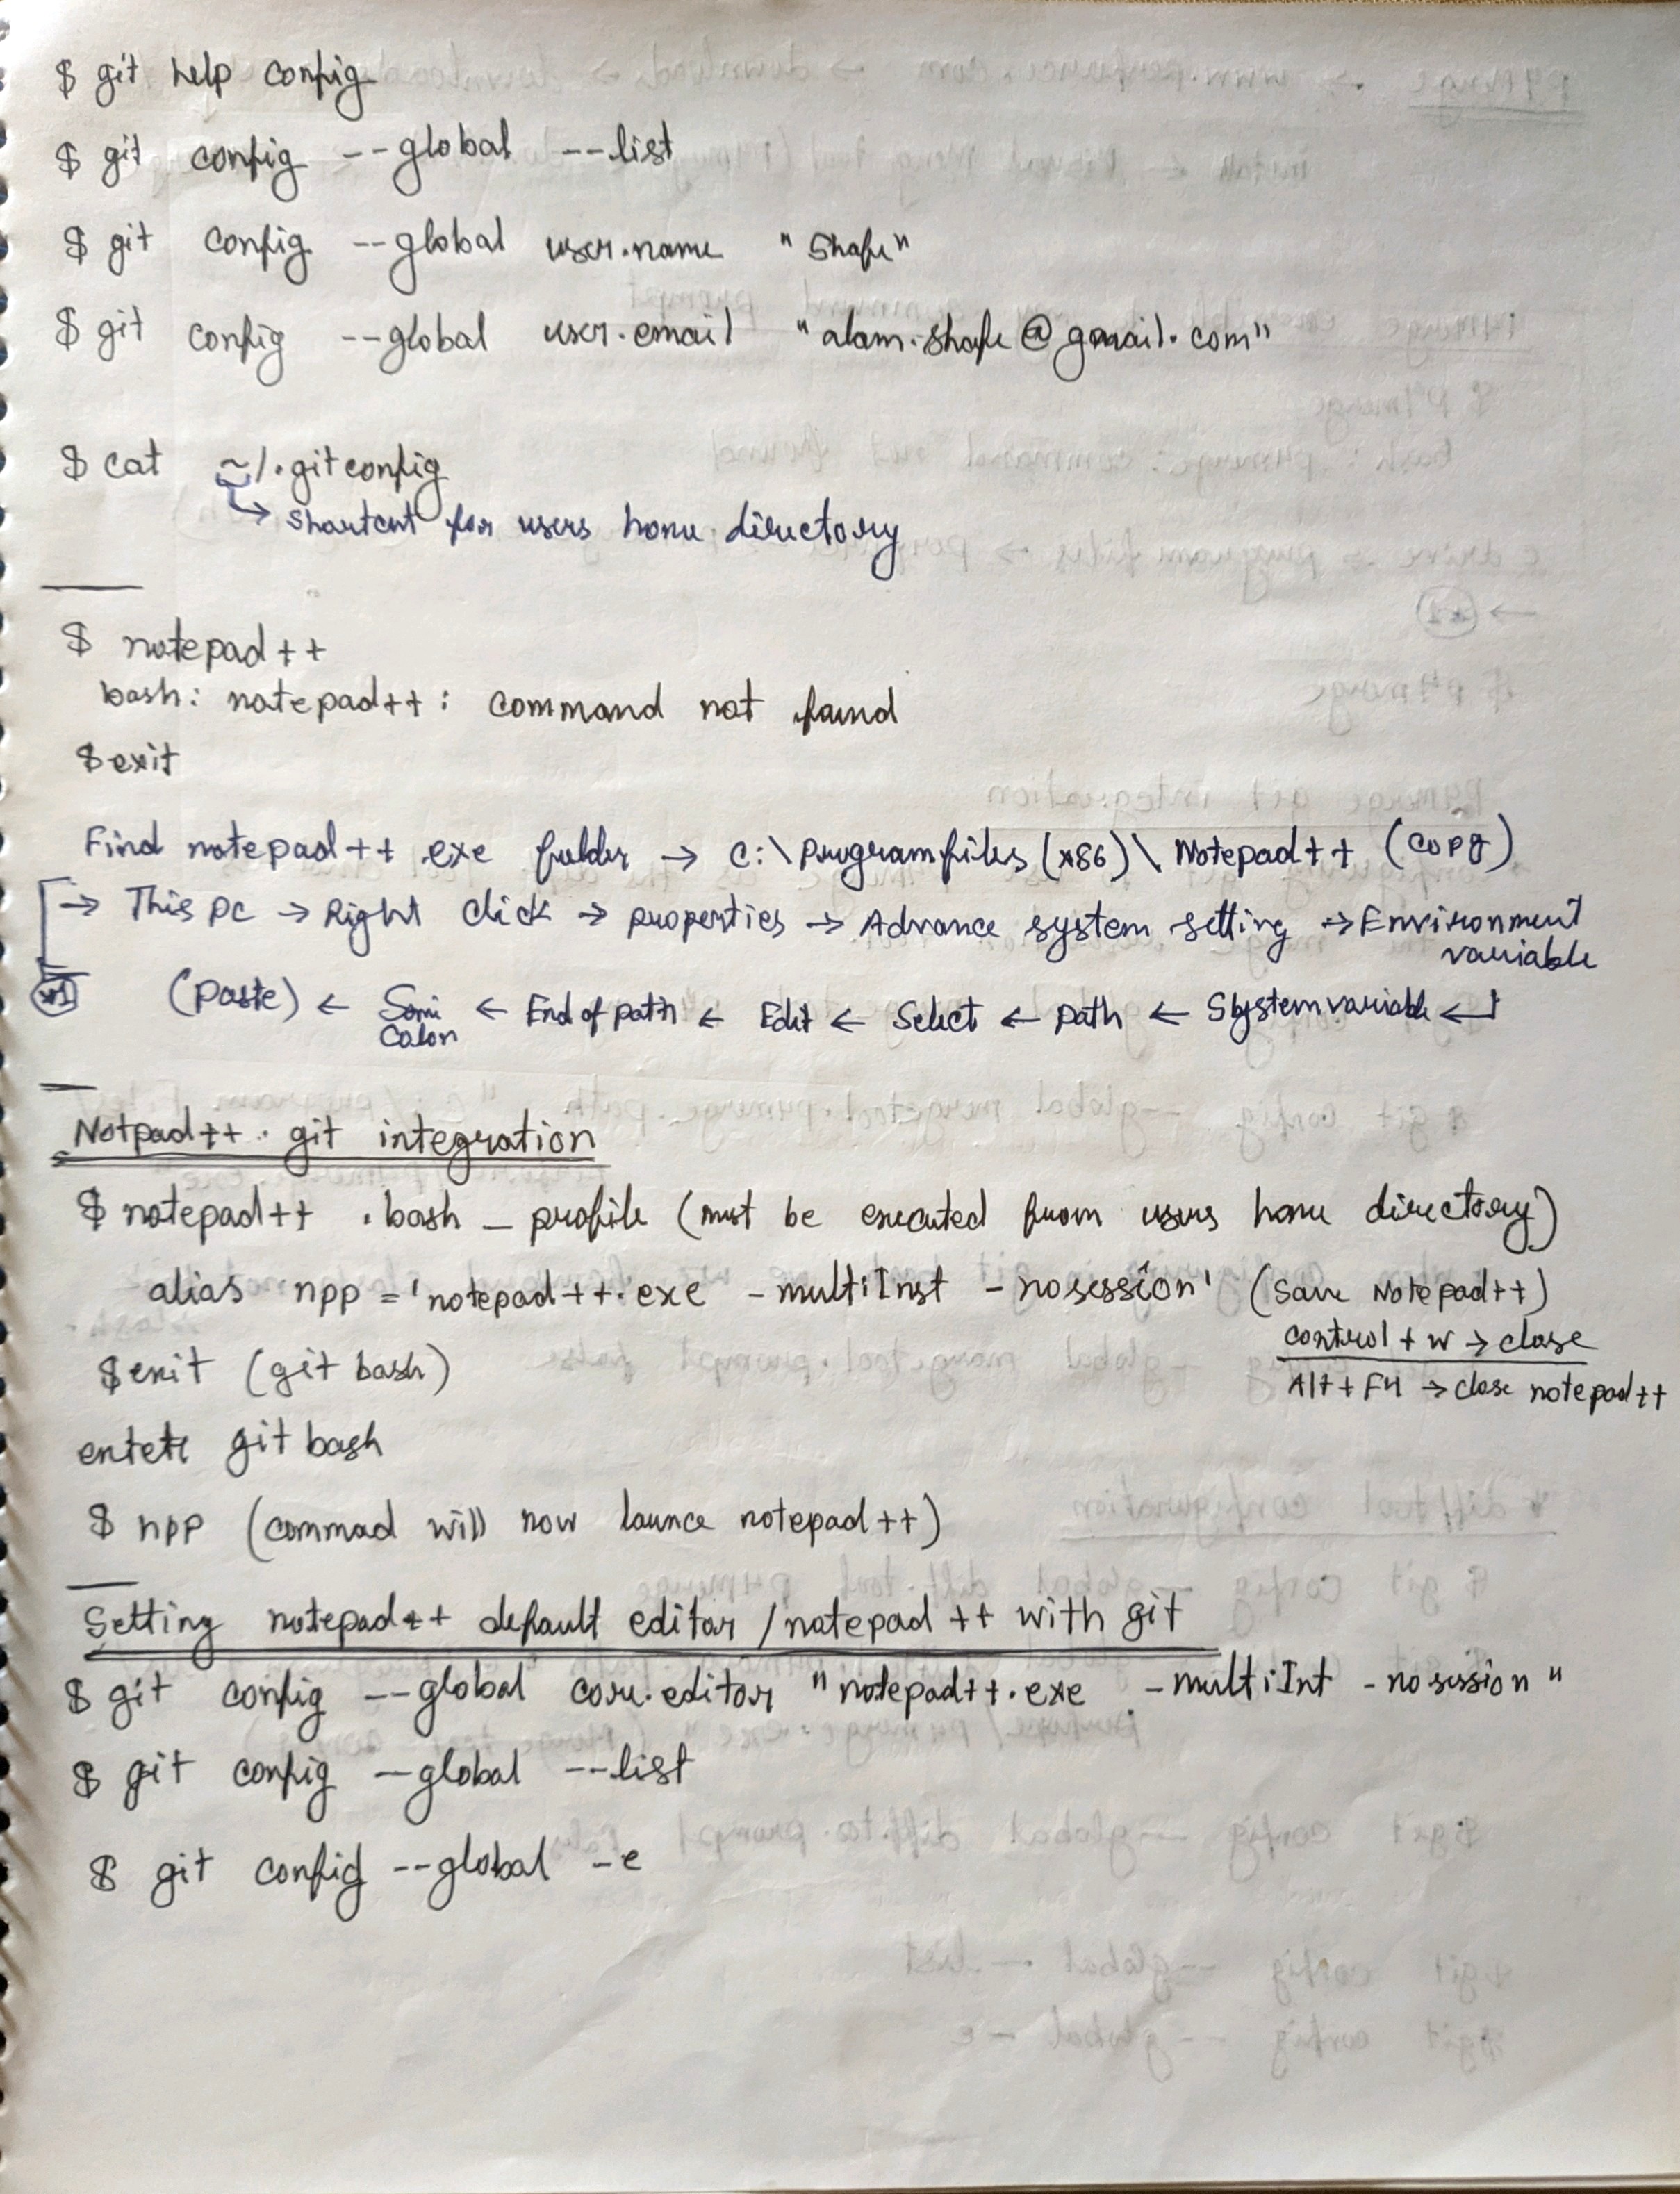 $ git help config
$ git config --global --list
$ git config --global user.name "Shafe"
$ git config --global user.email "alam.shafe@gmail.com"
$ cat ~/.gitconfig
↳ Shortcut for users home directory
$ notepad++
bash: notepad++: command not found
$ exit
Find notepad++ .exe folder → C:\Programfiles (x86)\Notepad++ (copy)
→ This PC → Right Click → properties → Advance system setting → Environment
variable
*1 (Paste) ← Semi ← End of path ← Edit ← Select ← Path ← System variable ↵
Colon
Notpad++ git integration
$ notepad++ .bash_profile (must be executed from users home directory)
alias npp = 'notepad++.exe -multiInst -nosession' (Save Notepad++)
control + w → close
$ exit (git bash)
Alt + F4 → close notepad++
enter git bash
$ npp (commad will now launce notepad++)
Setting notepad++ default editor / notepad ++ with git
$ git config --global core.editor "notepad++.exe -multiInt -nosession"
$ git config —global --list
$ git config --global -e